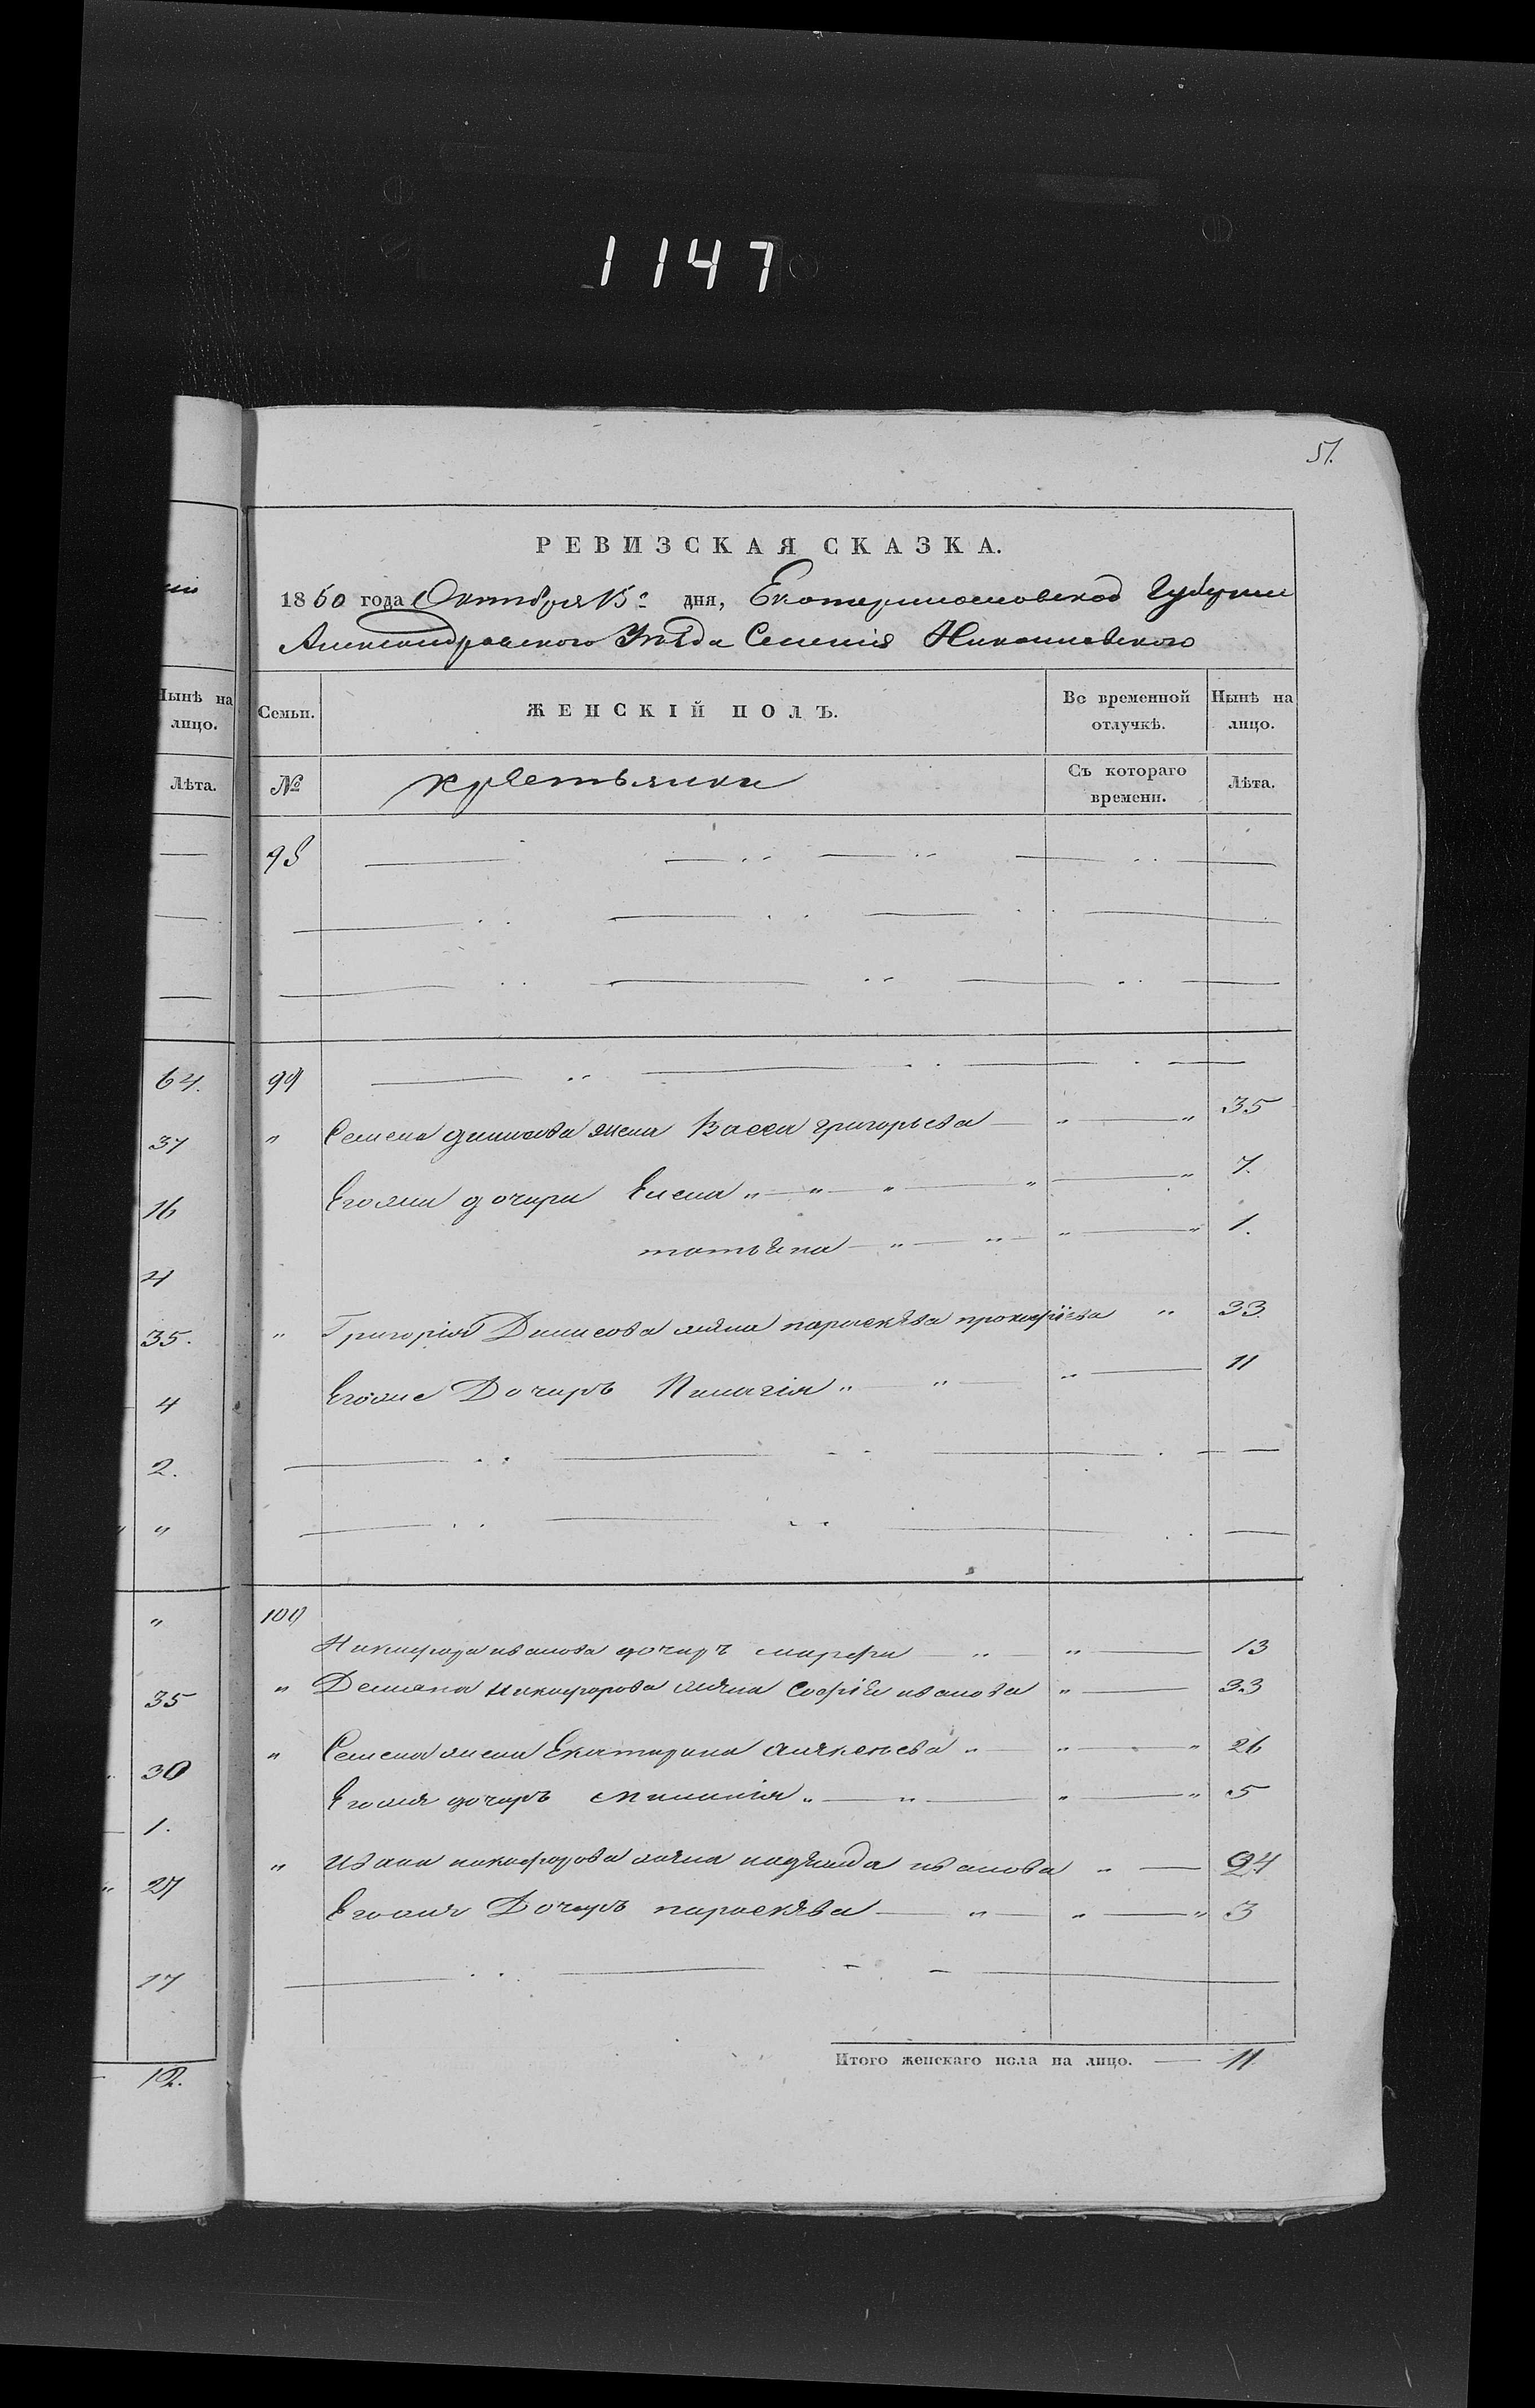 1147
51.
РЕВИЗСКАЯ СКАЗКА.
1850 года Октября 15го дня, Екатеринославской Губернии
Александровского Уезда Селения Николаевского
Нынѣ на лицо. Семьи. ЖЕНСКІЙ ПОЛЪ. Во временной отлучкѣ. Нынѣ на лицо.
Лѣта. № крестьянки Съ котораго времени. Лѣта.
98
64. 99
37 " Семена динисова жена Васса григорьева " " 35
16 Его жи дочери Елена " " " " " 7.
татьяна " " " " 1.
4
35. " Григорія Динисова жена параскева прокофіева " 33
4 Его же Дочирь Пилагія " " " 11
2.
" "
" 100
Никифора иванова дочирь марфа " " 13
35 " Демяна никифорова жена Софія иванова " 33
30 " Семена жена Екатирина " " " 26
1. Его жи дочирь " " " " 5
" 27 " Ивана никифорова жена надежда иванова " 24
Его жи Дочирь параскева " " " 3
17
Итого женскаго пола на лицо. — 11
12.